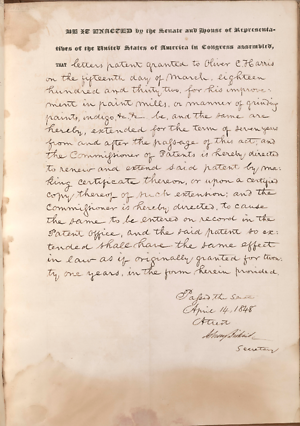 BE IT ENACTED by the Senate and House of Representa-
tives of the United States of America in Congress assembled,
THAT letters patent granted to Oliver C. Harris
on the fifteenth day of March, eighteen
hundred and thirty two, for his improve-
ment in paint mills, or manner of grinding
paints, indigo, &c. &c. be, and the same are
hereby, extended for the term of seven years
from and after the passage of this act; and
the Commissioner of Patents is hereby directed
to renew and extend said patent by ma-
king certificate thereon, or upon a certified
copy thereof of such extension; and the
Commissioner is hereby directed, to cause
the same to be entered on record in the
Patent office, and the said patent so ex-
tended shall have the same effect
in law as if originally granted for twen-
ty one years, in the form herein provided.
Passed the Senate
April 14, 1848
Attest
Secretary